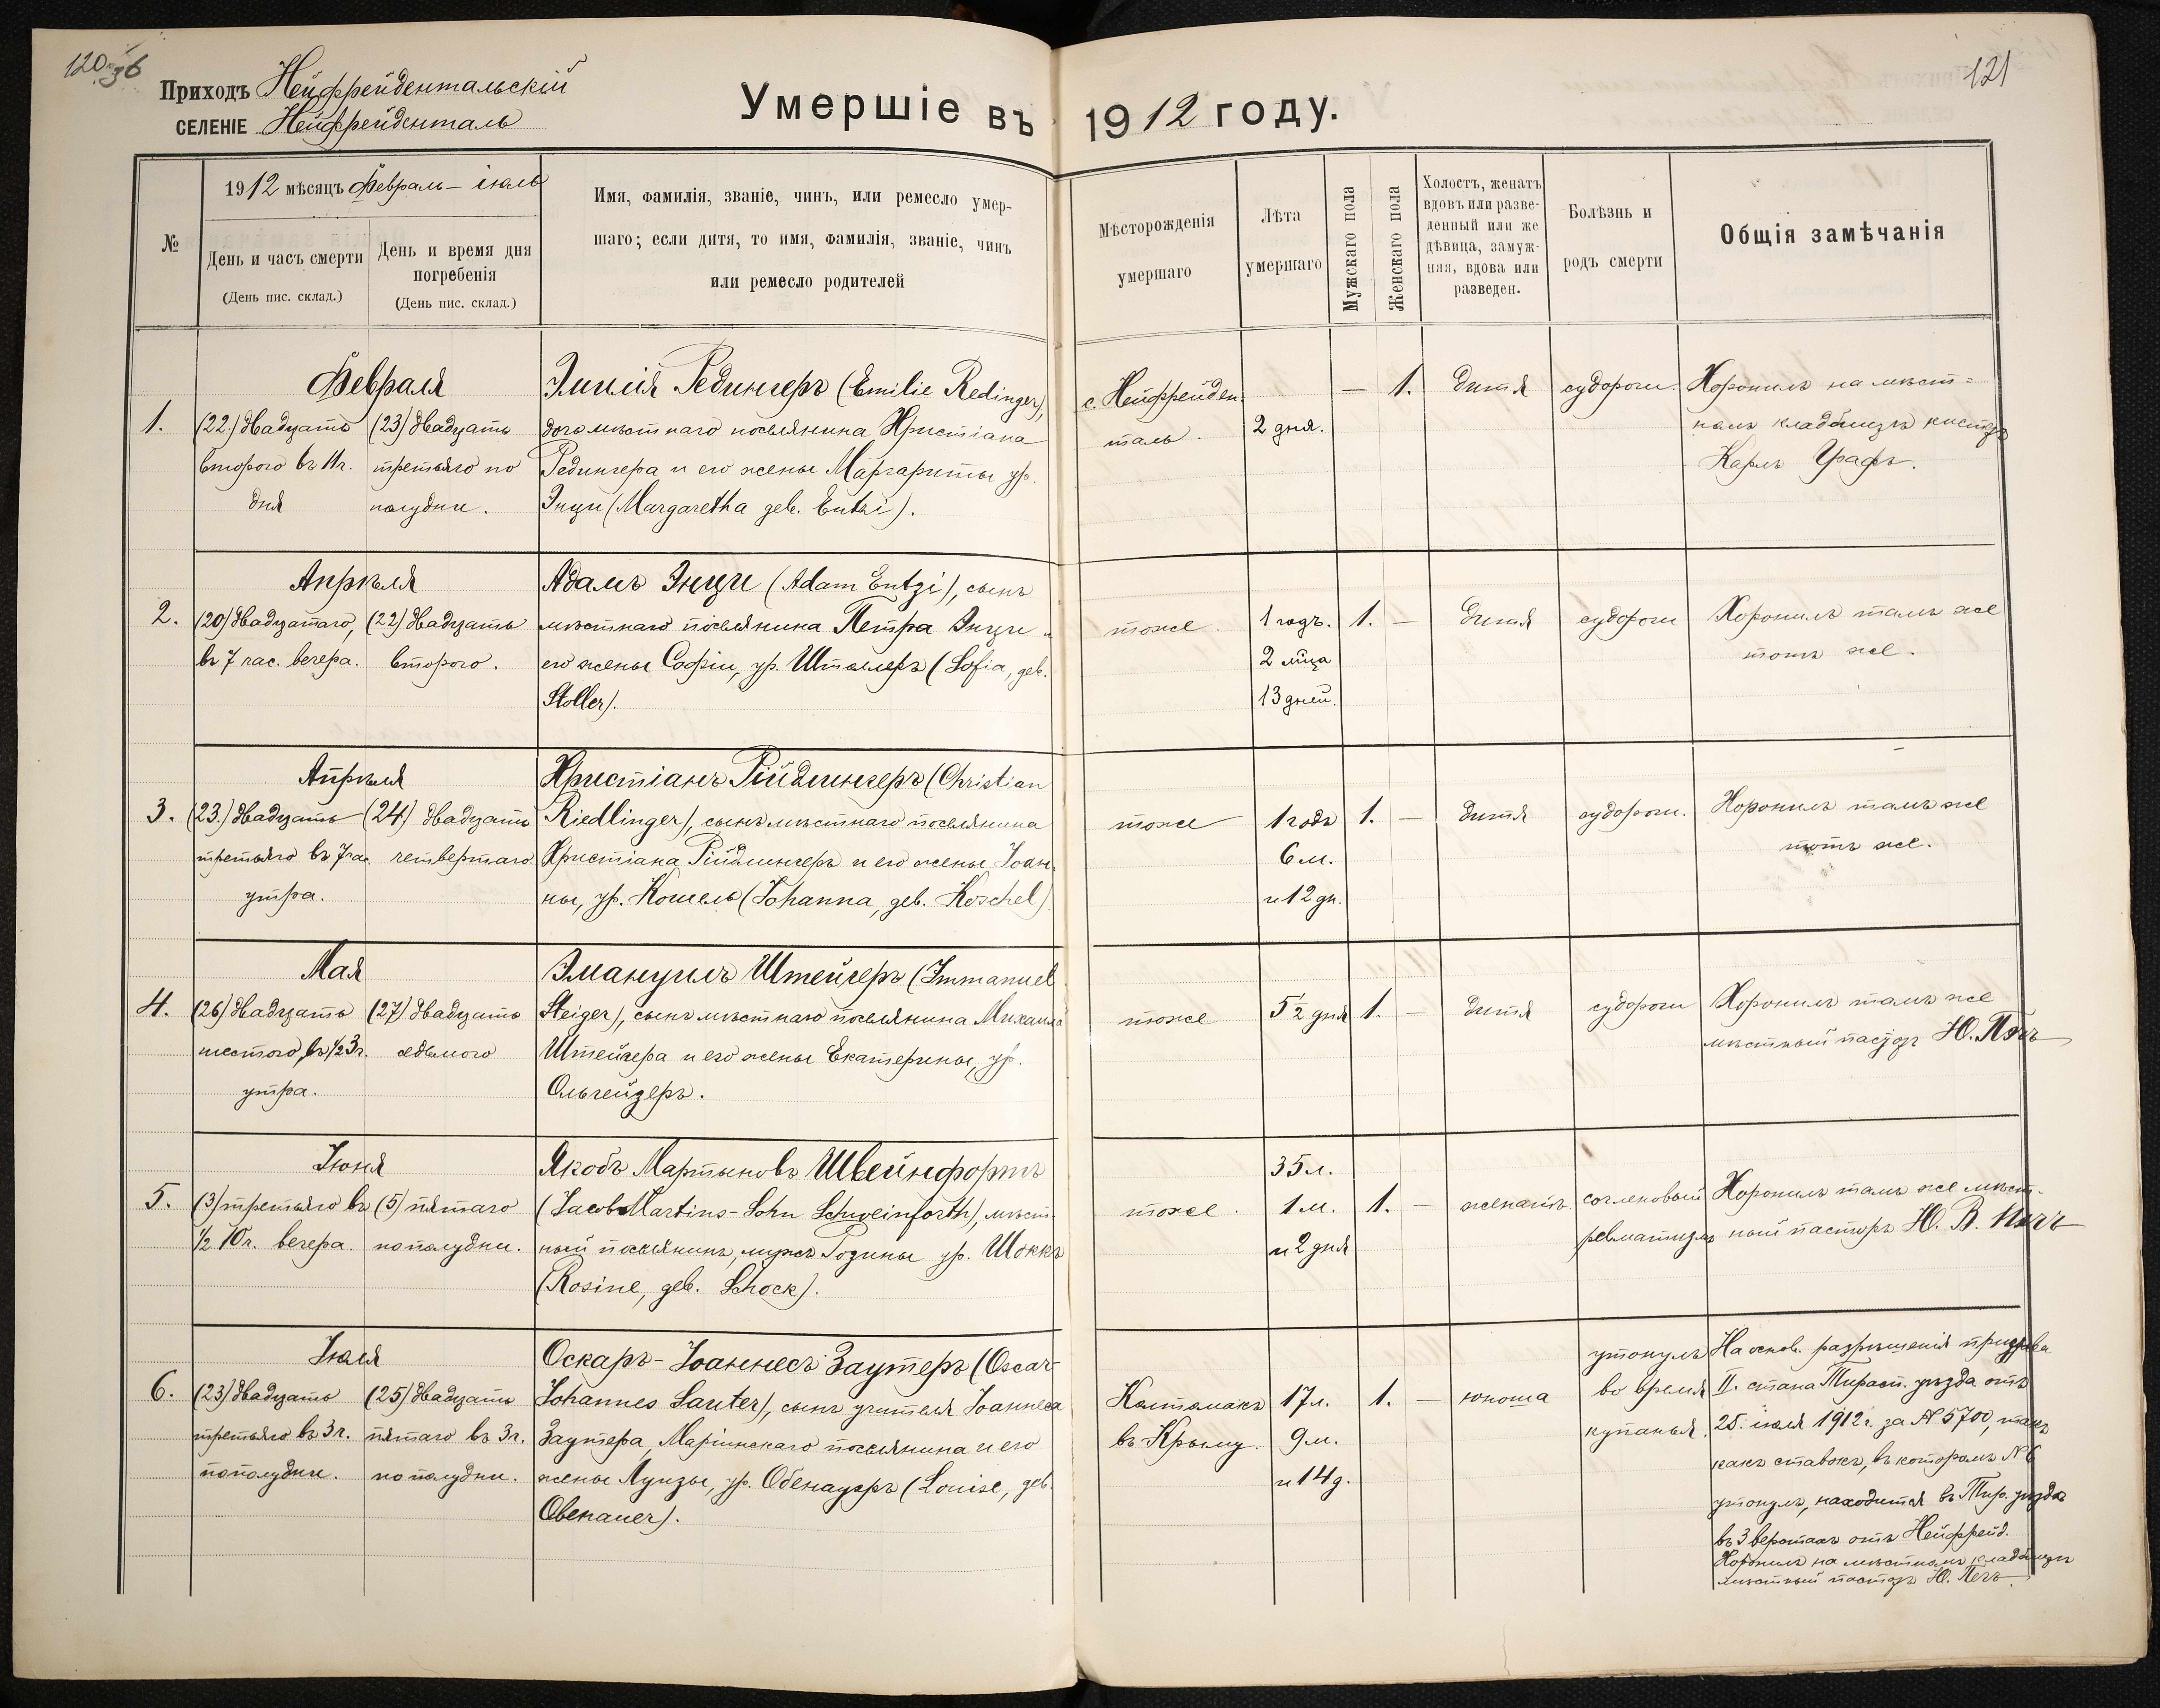 120 36
121
Приходъ Нейфрейдентальскій
СЕЛЕНІЕ Нейфрейденталь
Умершіе въ 1912 году.
№
1912 мѣсяцъ Февраль – іюль
День и часъ смерти
(День пис. склад.)
День и время дня
погребенія
(День пис. склад.)
Имя, фамилія, званіе, чинъ, или ремесло умер-
шаго; если дитя, то имя, фамилія, званіе, чинъ
или ремесло родителей
Мѣсторожденія
умершаго
Лѣта
умершаго
Мужскаго пола
Женскаго пола
Холостъ, женатъ
вдовъ или разве-
денный или же
дѣвица, замуж-
няя, вдова или
разведен.
Болѣзнь и
родъ смерти
Общія замѣчанія
1.
Февраля
(22.) двадцать
второго въ 11 ч.
дня
(23) двадцать
третьяго по
полудни.
Эмилія Редингеръ (Emilie Redinger),
дочь мѣстнаго поселянина Христіана
Редингера и его жены Маргариты ур.
Энци (Margaretha geb. Entzi).
с. Нейфрейден-
таль.
2 дня.
— 1.
дитя
судороги.
Хоронилъ на мѣст=
номъ кладбищѣ кистеръ
Карлъ Графъ.
2.
Апрѣля
(20) двадцатаго,
въ 7 час. вечера.
(22) двадцать
второго.
Адамъ Энци (Adam Entzi), сынъ
мѣстнаго поселянина Петра Энци и
его жены Софіи, ур. Штоллеръ (Sofia, geb.
Stoller).
тоже.
1 годъ.
2 мца
13 дней.
1. —
дитя
судороги
Хоронилъ тамъ же
тотъ же.
3.
Апрѣля
(23.) двадцать
третьяго въ 7 час.
утра.
(24.) двадцать
четвертаго
Христіанъ Рійдлингеръ (Christian
Riedlinger), сынъ мѣстнаго поселянина
Христіана Рійдлингеръ и его жены Іоан-
ны, ур. Кошель (Johanna, geb. Koschel)
тоже
1 годъ
6 м.
и 12 дн.
1. —
дитя
судороги.
Хоронилъ тамъ же
тотъ же.
4.
Мая
(26) двадцать
шестого, въ ½3 ч.
утра.
(27) двадцать
седьмого
Эмануилъ Штейгеръ (Immanuel
Steiger), сынъ мѣстнаго поселянина Михаила
Штейгера и его жены Екатерины, ур.
Ольгейзеръ.
тоже
5½ дня
1. —
дитя
судороги
Хоронилъ тамъ же
мѣстный пасторъ Ю. Печъ
5.
Іюня
(3) третьяго въ
½ 10 ч. вечера.
(5) пятаго
пополудни.
Якобъ Мартыновъ Швейнфортъ
(Jacob Martins-Sohn Schweinforth), мѣст-
ный поселянинъ, мужъ Розины ур. Шоккъ
(Rosine, geb. Schock).
тоже.
35 л.
1 м.
и 2 дня
1. —
женатъ
сочленовый
ревматизмъ
Хоронилъ тамъ же мѣст-
ный пасторъ Ю. В. Печъ
6.
Іюля
(23) двадцать
третьяго въ 3 ч.
пополудни.
(25) двадцать
пятаго въ 3 ч.
пополудни.
Оскаръ-Іоаннесъ Заутеръ (Oscar-
Johannes Sauter), сынъ учителя Іоаннеса
Заутера, Маріинскаго поселянина и его
жены Луизы, ур. Обенауеръ (Louise, geb.
Obenauer).
въ Крыму.
17 л.
9 м.
и 14 д.
1. —
юноша
утонулъ
во время
купанья.
На основ. разрѣшенія пристава
II. стана Тирасп. уѣзда отъ
25. іюля 1912 г. за № 5700, такъ
какъ ставокъ, въ которомъ № 6
утонулъ, находится въ Тир. уѣздѣ
въ 3 верстахъ отъ Нейфрейд.
Хоронилъ на мѣстномъ кладбищѣ
мѣстный пасторъ Ю. Печъ.